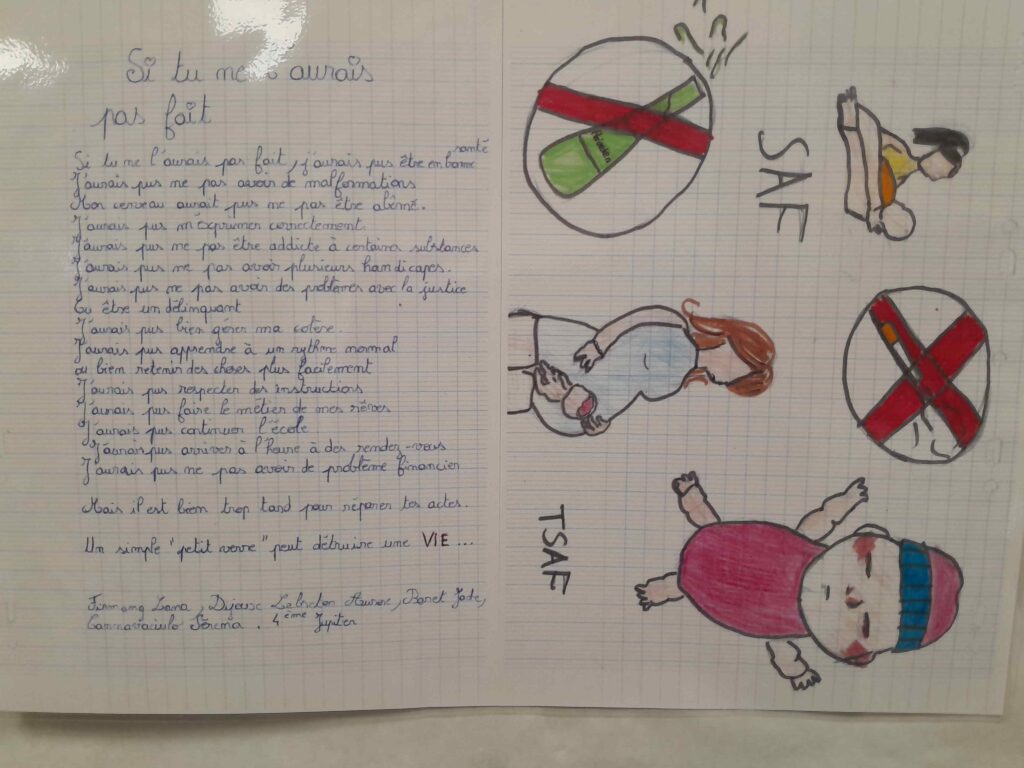 Si tu ne aurais
pas fait
Si tu ne l'aurais pas fait, j'aurais pus être en bonne santé
J'aurais pus ne pas avoir de malformations
Mon cerveau aurait pus ne pas être abîmé.
J'aurais pus m'exprimer correctement.
J'aurais pus ne pas être addicte à certaine substances
J'aurais pus ne pas avoir plusieurs handicapes.
J'aurais pus ne pas avoir des problèmes avec la justice
Ou être un délinquant
J'aurais pus bien gérer ma colère.
J'aurais pus apprendre à un rythme normal
ou bien retenir des choses plus facilement
J'aurais pus respecter des instructions
J'aurais pus faire le métier de mes rêves
J'aurais pus continuer l'école
J'aurais pus arriver à l'heure à des rendez-vous
J'aurais pus ne pas avoir de problème financier
Mais il est bien trop tard pour réparer tes actes.
Un simple "petit verre" peut détruire une VIE ...
Lana, Lebreton Aurore, Jade,
Séréna. 4ème Jupiter
SAF
TSAF